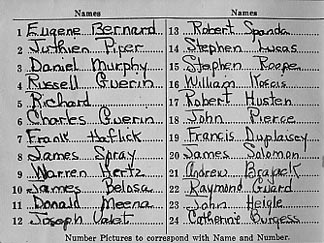 Names
1 Eugene Bernard
2 Piper
3 Daniel Murphy
4 Russell Guerin
5 Richard
6 Charles Guerin
7 Frank Haflick
8 James Spray
9 Warren Hertz
10 James Belosa
11 Donald Meena
12 Joseph
Names
13 Robert Spanda
14 Stephen Lucas
15 Stephen
16 William
17 Robert Husten
18 John Pierce
19 Francis Duplaisey
20 James Solomon
21 Andrew Brajack
22 Raymond Guard
23 John Heigle
24 Catherine Burgess
Number Pictures to correspond with Name and Number.